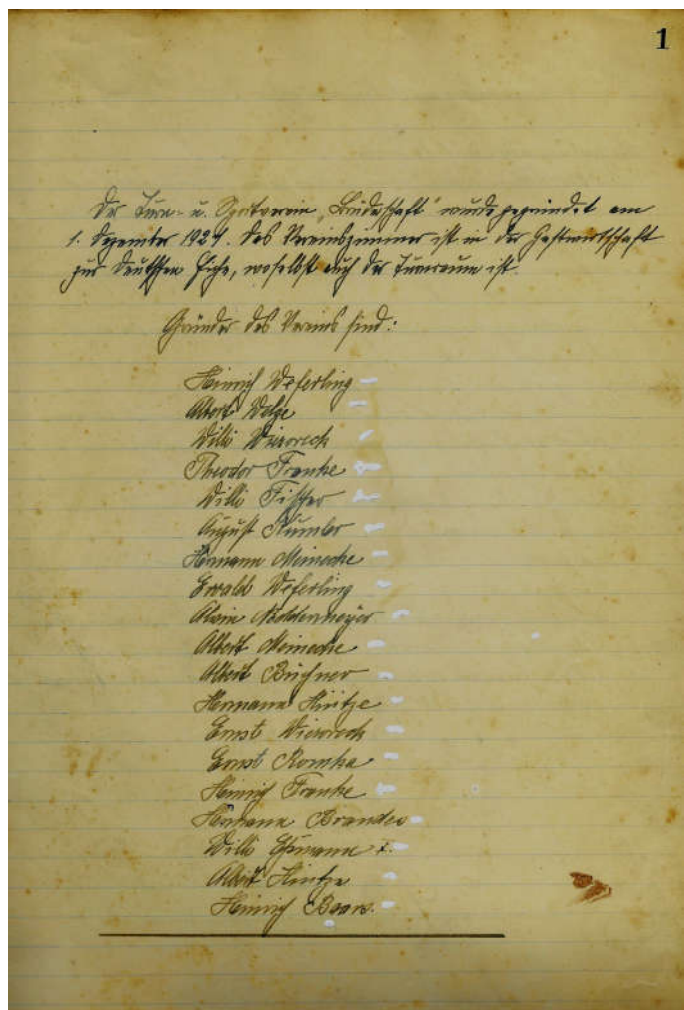 1
Der Turn- u. Sportverein „Bruderschaft" wurde gegründet am
1. Dezember 1921. Das Vereinszimmer ist in der Gastwirtschaft
zur Deutschen Eiche, woselbst auch der Turnraum ist.
Gründer des Vereins sind:
Heinrich Weferling
Albert Welge
Willi Wieworeck
Theodor Franke
Willi Fischer
August
Hermann Meinecke
Ewald Weferling
Alwin Noddenmeyer
Albert Meinecke
Albert Büchner
Hermann Hintze
Ernst Wieworeck
Ernst Romka
Heinrich Franke
Hermann Brandes
Willi
Albert Hintze
Heinrich Baars.